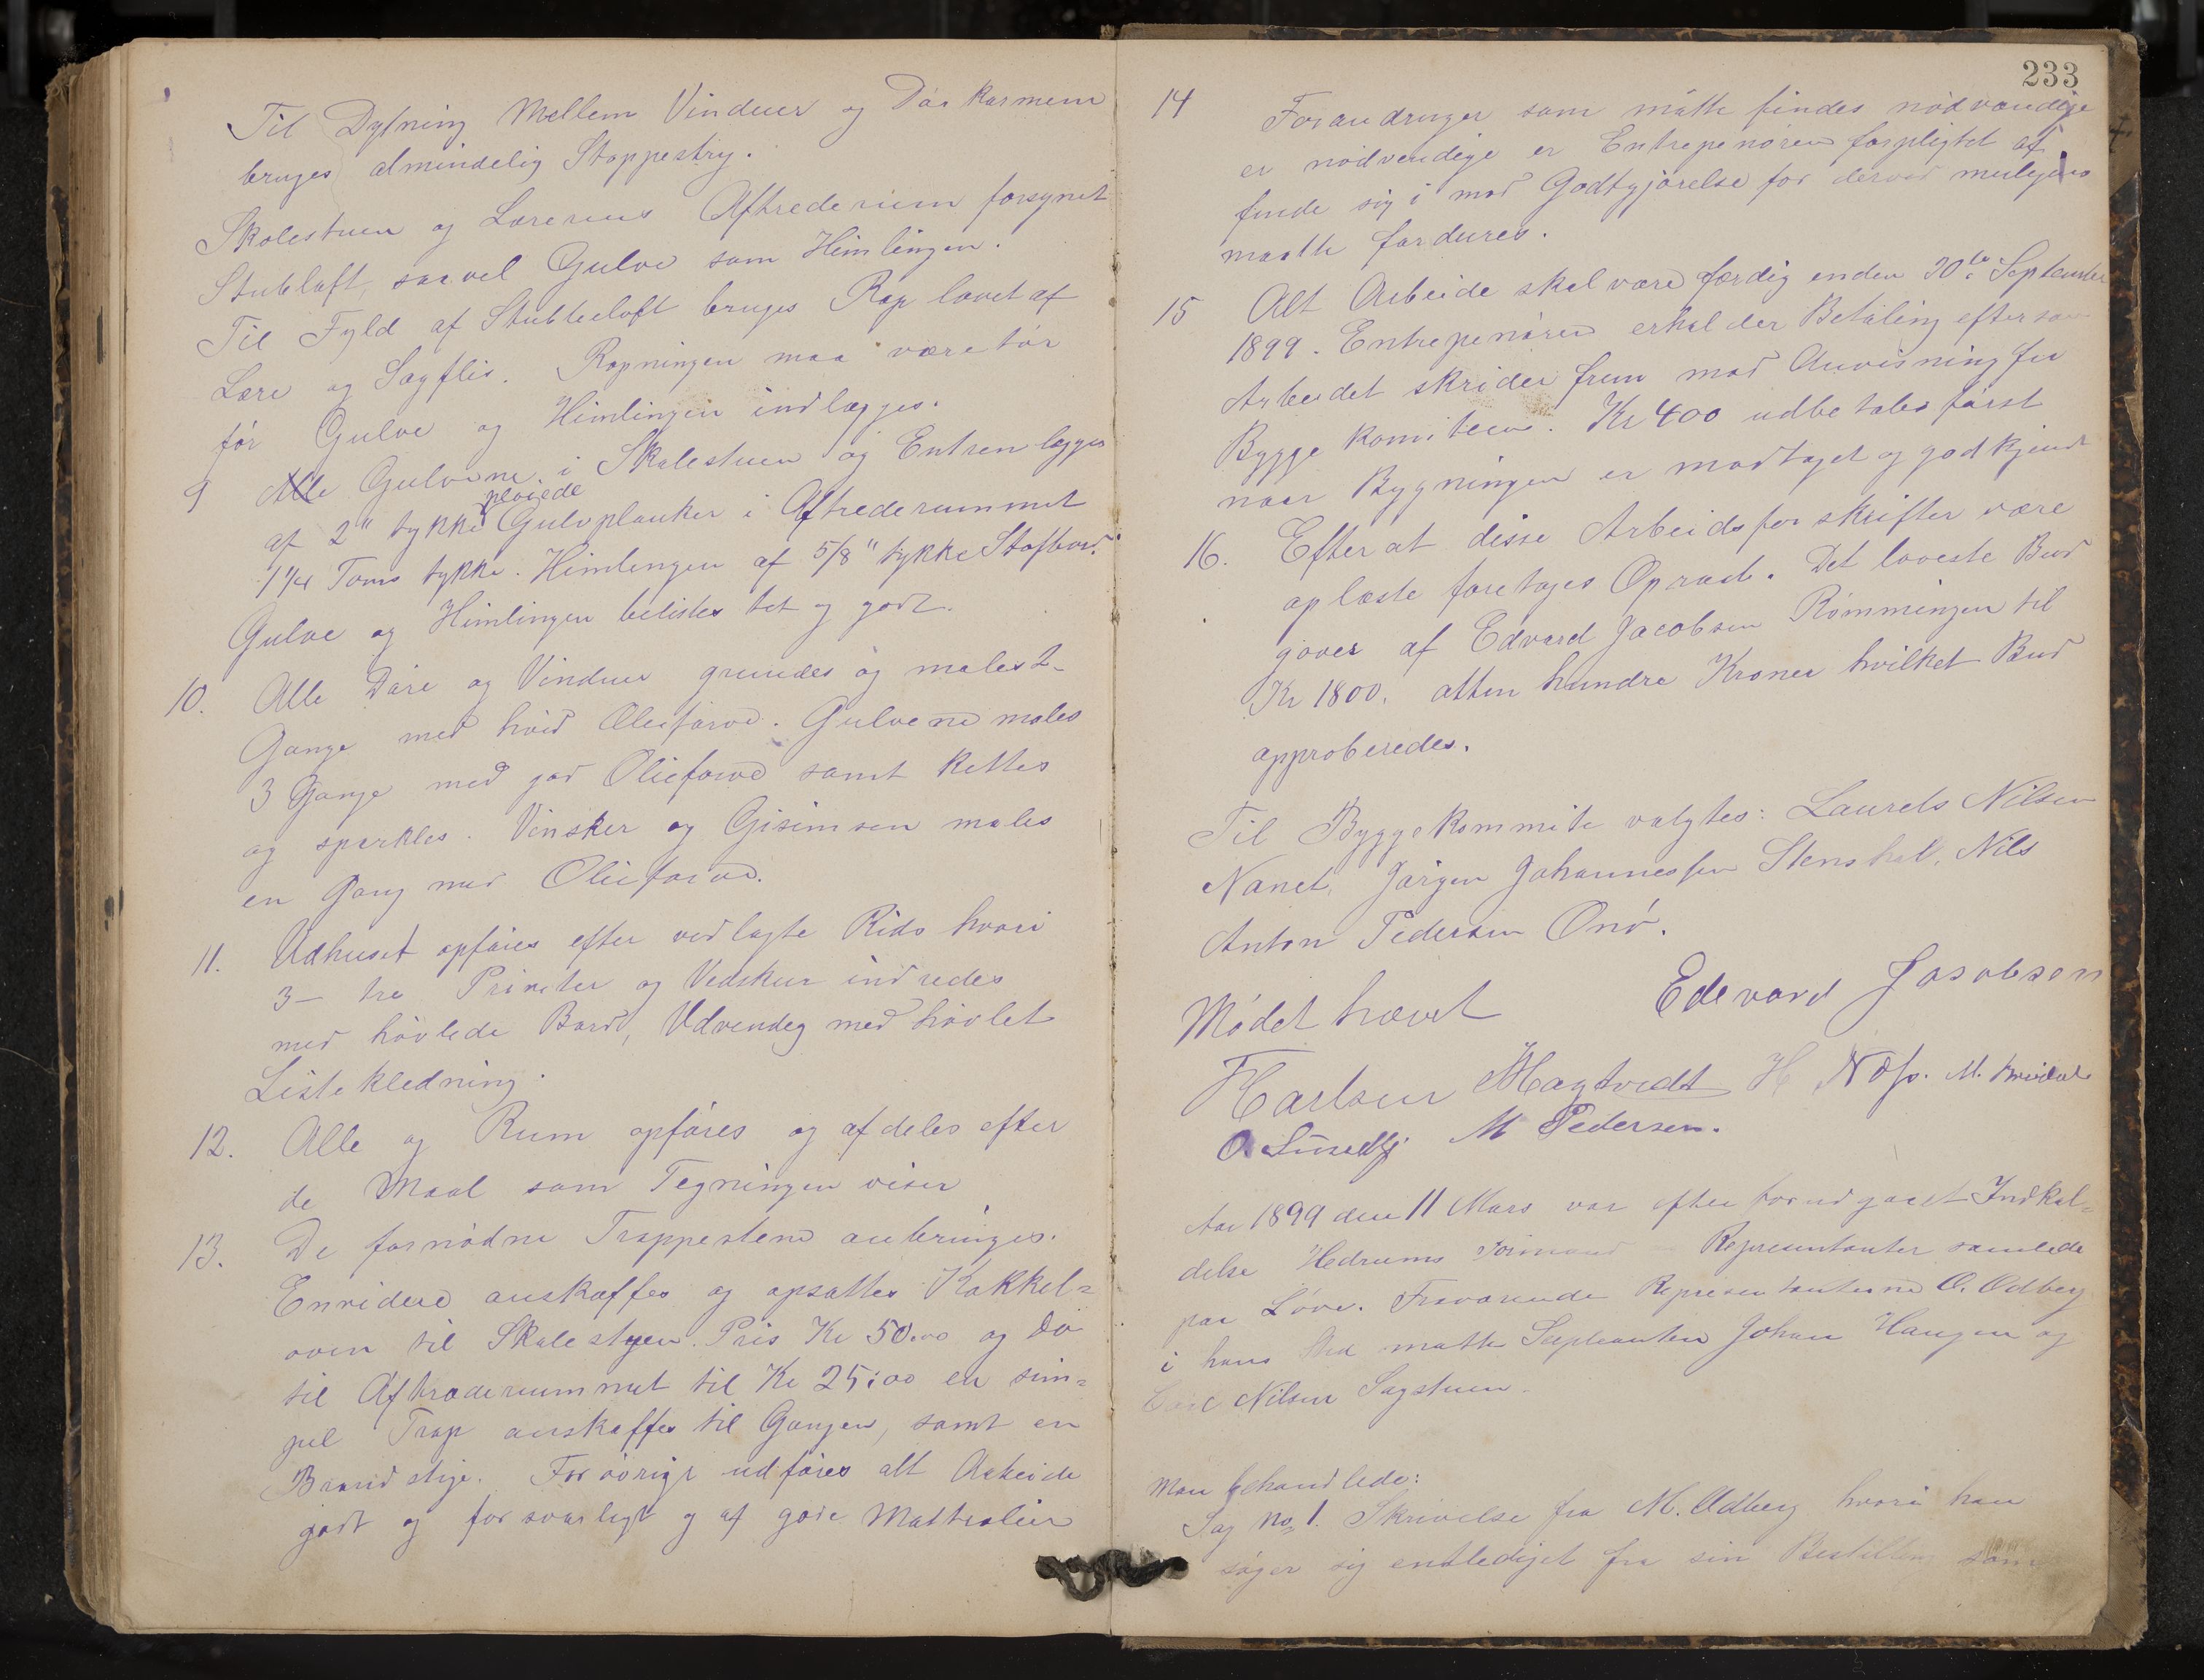 Til Dytning Mellem Vinduer og Dör karmene
bruges almindelig Stoppestry.
Skolestuen og Lærerens Aftrederum forsynet
Stubloft, saavel Gulve som Himlingen.
Til Fyld af Stubbeloft bruges Rap lavet af
Lere og Sagflis. Rapningen maa være tör
för Gulve og Himlingen indlægges.
9 Alle Gulvene i Skolestuen og Entren lægges
af 2" tykke plöiede Gulvplanker i Aftrederummet
1 1/4 Toms tykke. Himlingen af 5/8" tykke Stafbord.
Gulve og Himlingen belistes tet og godt.
10. Alle Döre og Vinduer grundes og males 2-
Gange med hvid Oliefarve. Gulvene males
3 Gange med god Oliefarve samt kettes
og sparkles. Vinsker og Gisimsen males
en Gang med Oliefarve.
11. Udhuset opföres efter vedlagte Rids hvori
3- tre Priveter og Vedskur indredes
med hövlede Bord, Udvendig med hövlet
Listekledning.
12. Alle og Rum opföres og afdeles efter
de Maal som Tegningen viser
13. De fornödne Trappestene anbringes.
Enridere anskaffes og opsættes Kakkel=
oven til Skolestuen. Pris Kr 50.00 og do
til Aftræderummet til Kr 25:00 en sim=
pel Trap anskaffes til Gangen, samt en
Brandstige. For övrigt udföres alt Arbeide
godt og forsvarligt og af gode Matrialier
233
14 Forandringer som måtte findes nödvændige
er nödvendige er Entrepenören forpligtet at
finde sig i mod Godtgjörelse for derved muligens
maatte fordures.
15 Alt Arbeide skal være færdig enden 20de September
1899. Entrepenören erholder Betaling eftersom
Arbeidet skrider frem mod Anvisning fra
Bygge komiteen. Kr 400 udbetales först
naar Bygningen er modtaget og godkjendt
16. Efter at disse Arbeidsforskrifter være
oplæste foretages Opraab. Det laveste Bud
gaves af Edvard Jacobsen Römmingen til
Kr 1800. atten hundre Kroner hvilket Bud
approberedes.
Til Byggekommite valgtes: Laurels Nilsen
Nanet, Jörgen Johannessen Stenshol, Nils
Anton Pedersen Onö.
Mödet hævet Edevard Jasobsen
Karlsen Magtvedt H Næss. M.
O. Lundby M Pedersen.
Aar 1899 den 11 Mars var efter forudgaaet Indkal=
delse Hedrums Formænd – Representanter samlede
paa Löve. Fraværende Representanterne O. Odberg
i hans Sted mötte Supleanten Johan Haugen og
Carl Nilsen Sagstuen.
Man behandlede:
Sag No 1. Skrivelse fra M. Odberg hvori han
söger sig entlediget fra sin Bestilling som